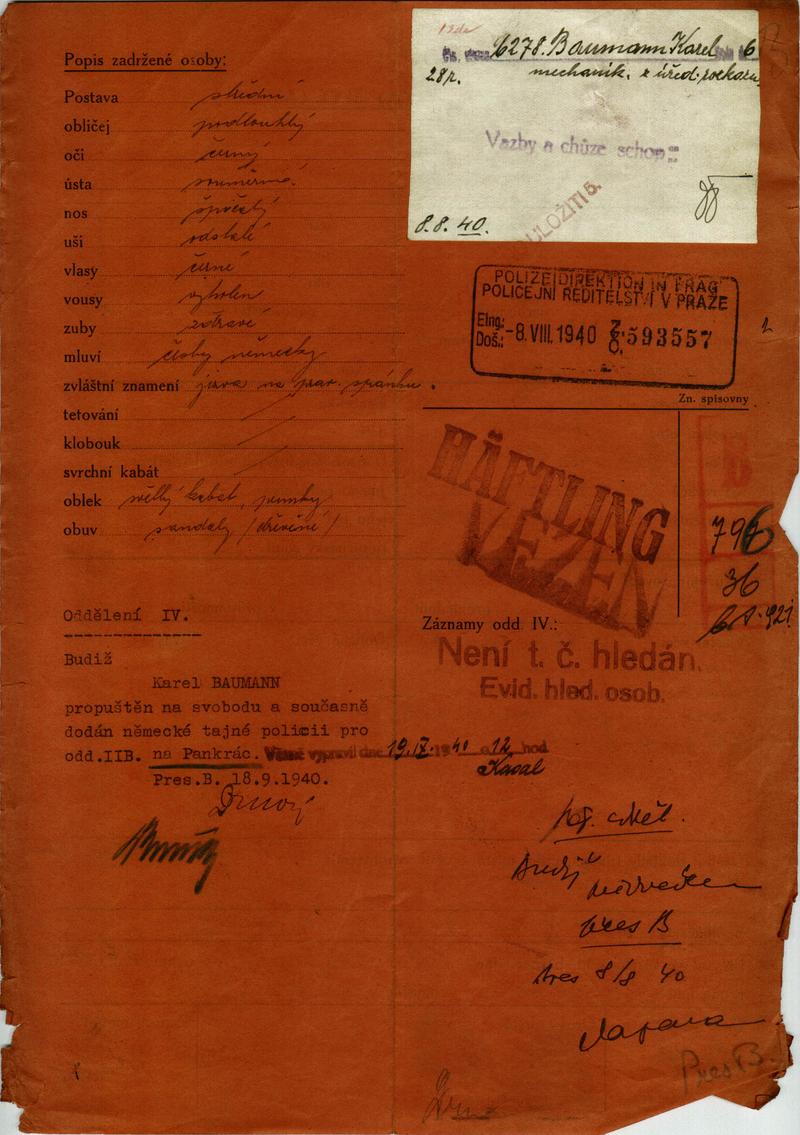 Popis zadržené osoby:
Postava střední
obličej podlouhlý
oči černý
ústa souměrná
nos špičatý
uši odstálé
vlasy černé
vousy vyholen
zuby zdravé
mluví česky německy
zvláštní znamení jizva na prav. spánku.
tetování
klobouk
svrchní kabát
oblek světlý kabát, pumky
obuv sandály (dřevěné)
6278. Baumann Karel 6
28 r. mechanik. z úřed.
Vazby a chůze schopen
ULOŽITI 5.
8.8.40.
POLIZEIDIREKTION IN PRAG
POLICEJNÍ ŘEDITELSTVÍ V PRAZE
Eing.:
Doš.: -8. VIII. 1940 Z. Č. 593557
Zn. spisovny
HÄFTLING
VĚZEŇ
B
796
36
Oddělení IV.
Budiž
Karel BAUMANN
propuštěn na svobodu a současně
dodán německé tajné policii pro
odd.IIB. na Pankrác. Vězně vypravil dne 19.IX.1940 o 12 hod
Pres.B. 18.9.1940.
Záznamy odd. IV.:
Není t. č. hledán.
Evid. hled. osob.
Pres B
Pres 8/8 40
Pres B.